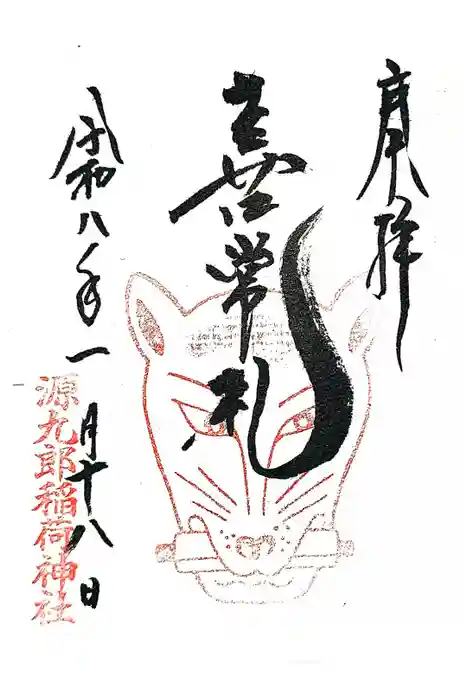 奉拝
喜常札
令和八年一月十八日
源九郎稲荷神社